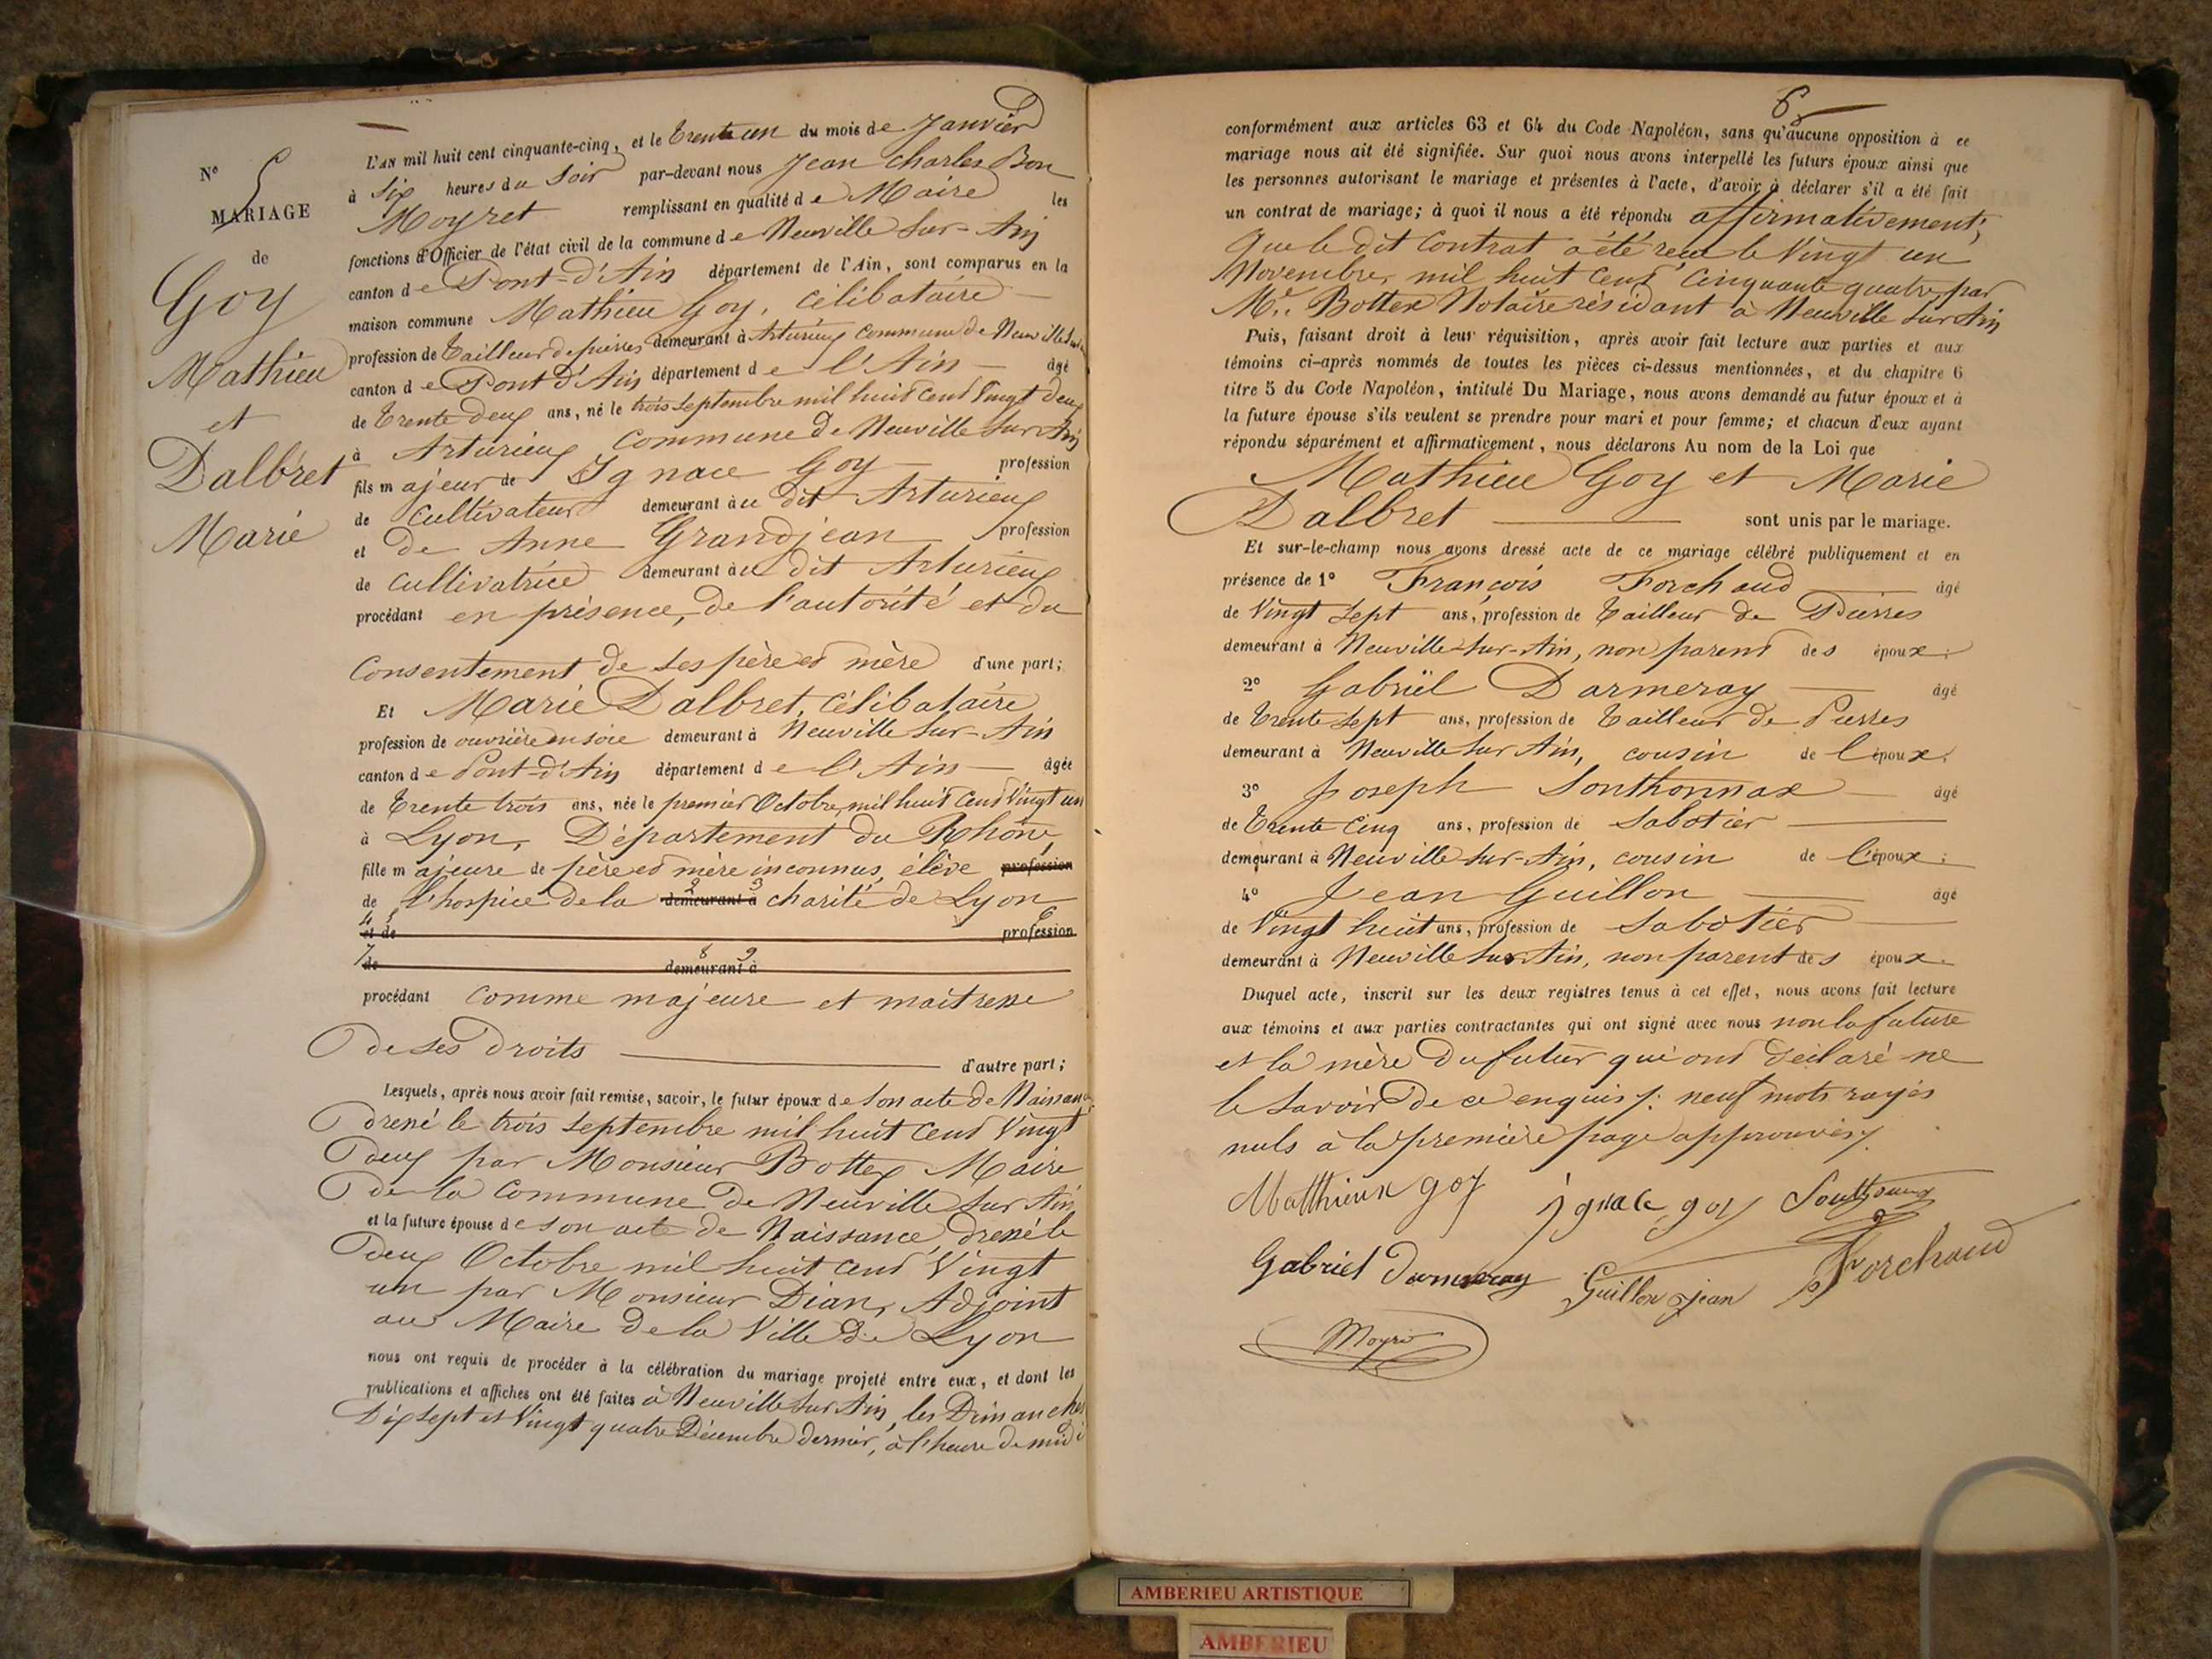 N° 5
MARIAGE
de
Goy
Mathieu
et
Dalbret
Marie
L'AN mil huit cent cinquante-cinq, et le trente un du mois de Janvier
à Six heures du Soir par-devant nous Jean Charles Bon
Moyret remplissant en qualité de Maire les
fonctions d'Officier de l'état civil de la commune de Neuville sur-Ain
canton de Pont-d'Ain département de l'Ain, sont comparus en la
maison commune Mathieu Goy, célibataire
profession de tailleur de pierres demeurant à Arturieux commune de Neuville
canton de Pont d'Ain département de l'Ain âgé
de trente deux ans, né le trois Septembre mil huit cent vingt deux
à Arturieux commune de Neuville sur Ain
fils majeur de Ignace Goy profession
de cultivateur demeurant à u dit Arturieux
et de Anne Grandjean profession
de cultivatrice demeurant à u dit Arturieux
procédant en présence, de l'autorité et du
Consentement de ses père et mère d'une part;
Et Marie Dalbret, célibataire
profession de ouvrière en soie demeurant à Neuville sur-Ain
canton de Pont-d'Ain département de l'Ain âgée
de trente trois ans, née le premier Octobre, mil huit cent vingt un
à Lyon, Département du Rhône,
fille majeure de père et mère inconnus, élève profession
de l'hospice de la demeurant à charité de Lyon
et de profession
de demeurant à
procédant comme majeure et maitresse
de ses droits d'autre part;
Lesquels, après nous avoir fait remise, savoir, le futur époux de son acte de Naissance
dressé le trois Septembre mil huit cent vingt
deux par Monsieur Bottex Maire
de la Commune de Neuville sur Ain
et la future épouse de son acte de Naissance, dressé le
deux Octobre mil huit cent vingt
un par Monsieur Dian, Adjoint
au Maire de la Ville de Lyon
nous ont requis de procéder à la célébration du mariage projeté entre eux, et dont les
publications et affiches ont été faites à Neuville sur Ain, les Dimanches
Dix sept et vingt quatre Décembre dernier, à l'heure de midi
6
conformément aux articles 63 et 64 du Code Napoléon, sans qu'aucune opposition à ce
mariage nous ait été signifiée. Sur quoi nous avons interpellé les futurs époux ainsi que
les personnes autorisant le mariage et présentes à l'acte, d'avoir à déclarer s'il a été fait
un contrat de mariage; à quoi il nous a été répondu affirmativement,
Que le dit Contrat a été reçu le Vingt un
Novembre, mil huit cent cinquante quatre, par
Me. Bottex Notaire résidant à Neuville sur Ain
Puis, faisant droit à leur réquisition, après avoir fait lecture aux parties et aux
témoins ci-après nommés de toutes les pièces ci-dessus mentionnées, et du chapitre 6
titre 5 du Code Napoléon, intitulé Du Mariage, nous avons demandé au futur époux et à
la future épouse s'ils veulent se prendre pour mari et pour femme; et chacun d'eux ayant
répondu séparément et affirmativement, nous déclarons Au nom de la Loi que
Mathieu Goy et Marie
Dalbret sont unis par le mariage.
Et sur-le-champ nous avons dressé acte de ce mariage célébré publiquement et en
présence de 1° François Forchaud âgé
de Vingt sept ans, profession de tailleur de Pierres
demeurant à Neuville sur-Ain, non parent des époux;
2° Gabriël Darmeray âgé
de trente sept ans, profession de tailleur de Pierres
demeurant à Neuville sur Ain, cousin de l'époux;
3° Joseph Sonthonnax âgé
de trente Cinq ans, profession de Sabotier
demeurant à Neuville sur-Ain, cousin de l'époux;
4° Jean Guillon âgé
de Vingt huit ans, profession de Sabotier
demeurant à Neuville sur Ain, non parent des époux.
Duquel acte, inscrit sur les deux registres tenus à cet effet, nous avons fait lecture
aux témoins et aux parties contractantes qui ont signé avec nous non la future
et la mère du futur qui ont déclaré ne
le savoir de ce enquis /: neuf mots rayés
nuls à la première page approuvés /.
Matthieux goy ignace goy Sonthonnax
Gabriel Darmeray Guillon jean Forchaud
Moyret
AMBERIEU ARTISTIQUE
AMBERIEU